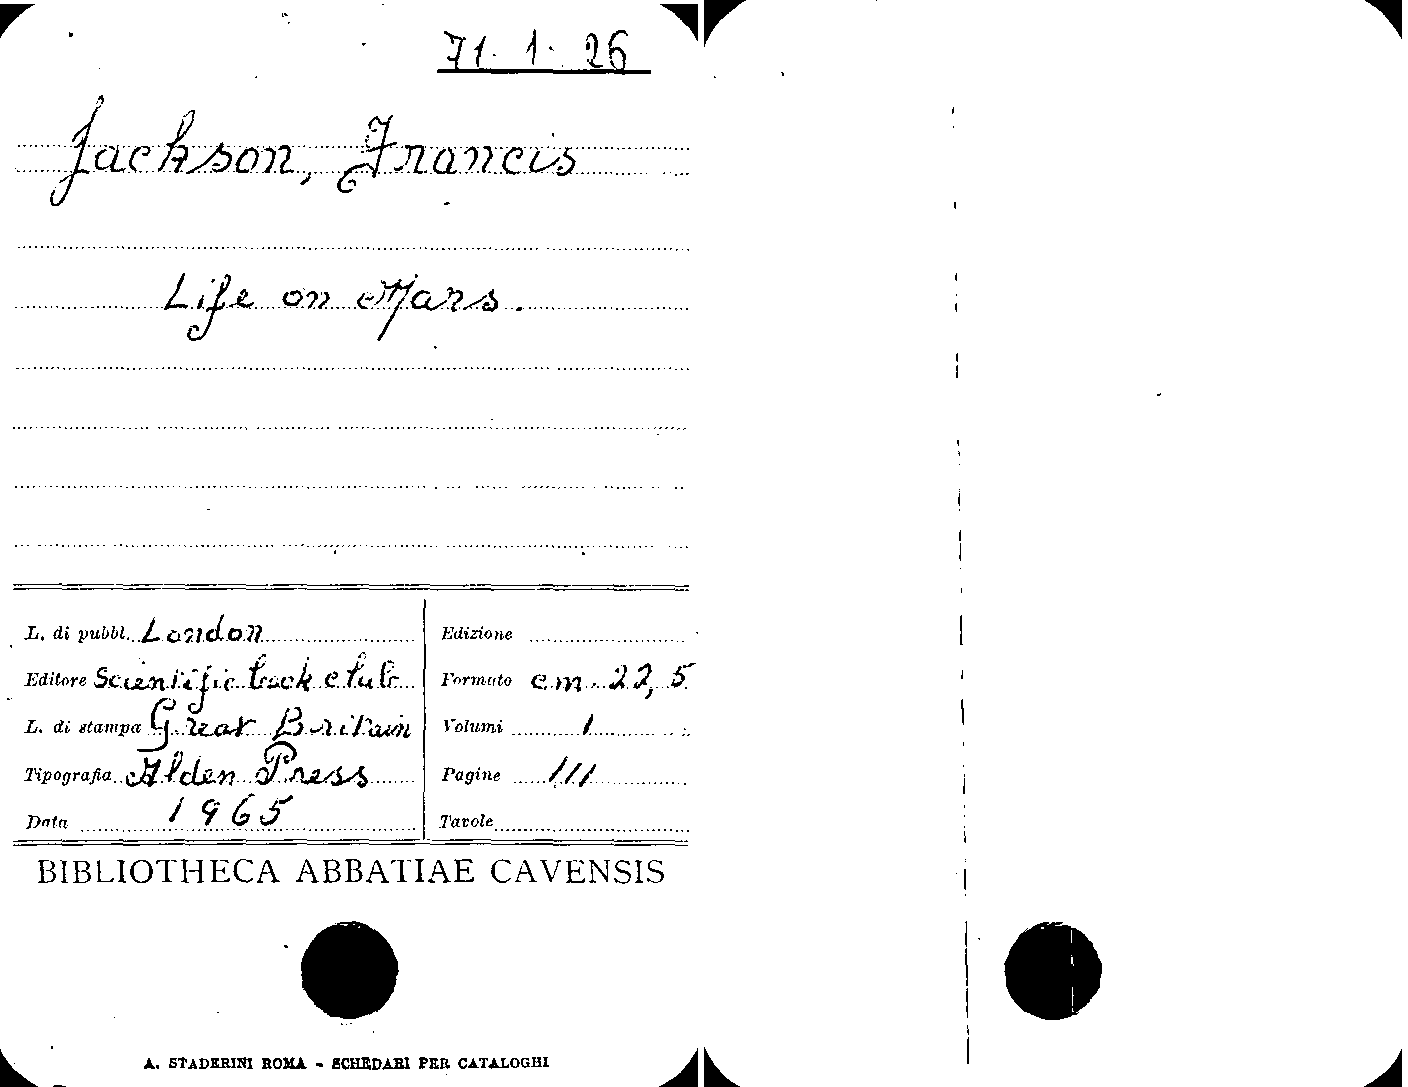 71. 1. 26
Jackson, Francis
Life on Mars.
L. di pubbl. London
Editore Scientific book club
L. di stampa Great Britain
Tipografia Alden Press
Data 1965
Edizione
Formato cm. 22,5
Volumi 1
Pagine 111
Tavole
BIBLIOTHECA ABBATIAE CAVENSIS
A. STADERINI ROMA - SCHEDARI PER CATALOGHI